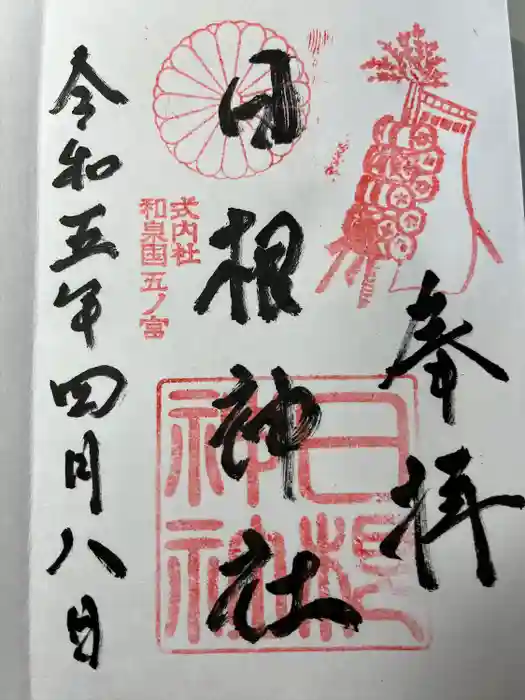 奉拝
日根神社
式内社
和泉国五ノ宮
日根
神社
令和五年四月八日